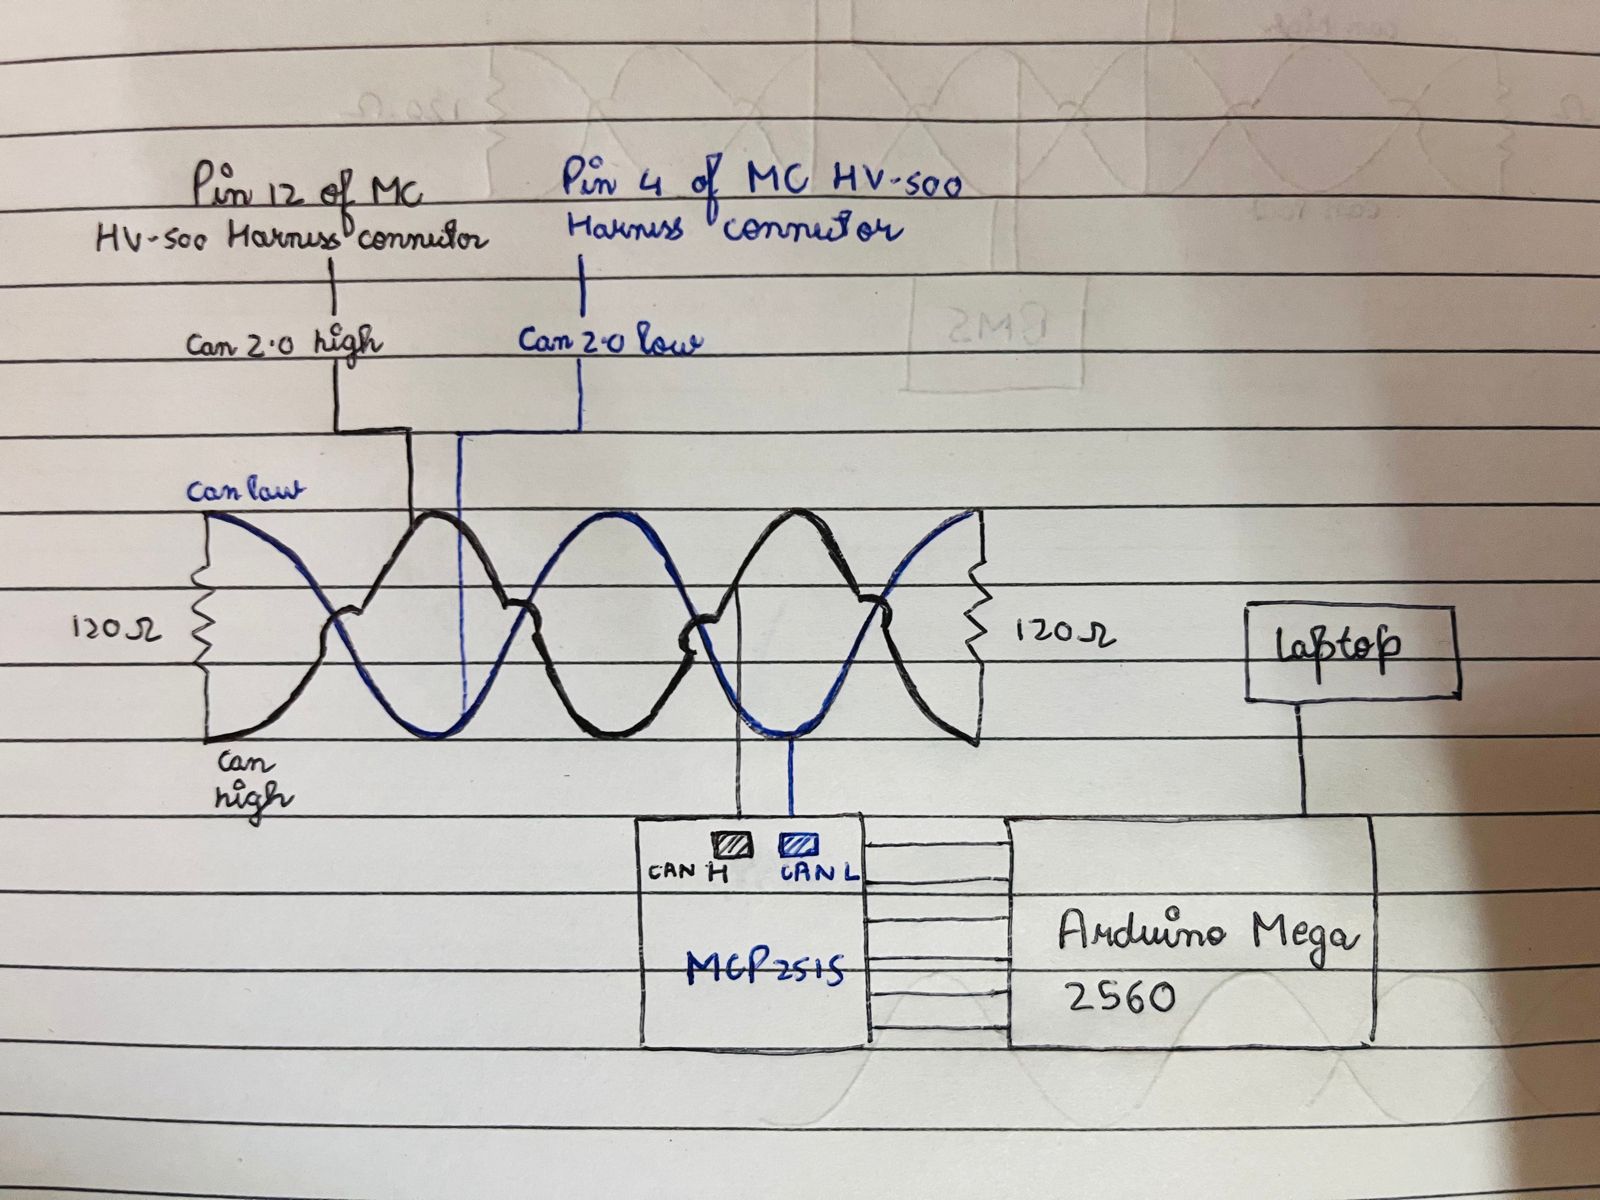 Pin 12 of MC
HV-500 Harness connector
Pin 4 of MC HV-500
Harness connector
Can 2.0 high
Can 2.0 low
Can low
120Ω
120Ω
Can
high
laptop
CAN H
CAN L
MCP2515
Arduino Mega
2560
can high
120Ω
Ω
can low
BMS